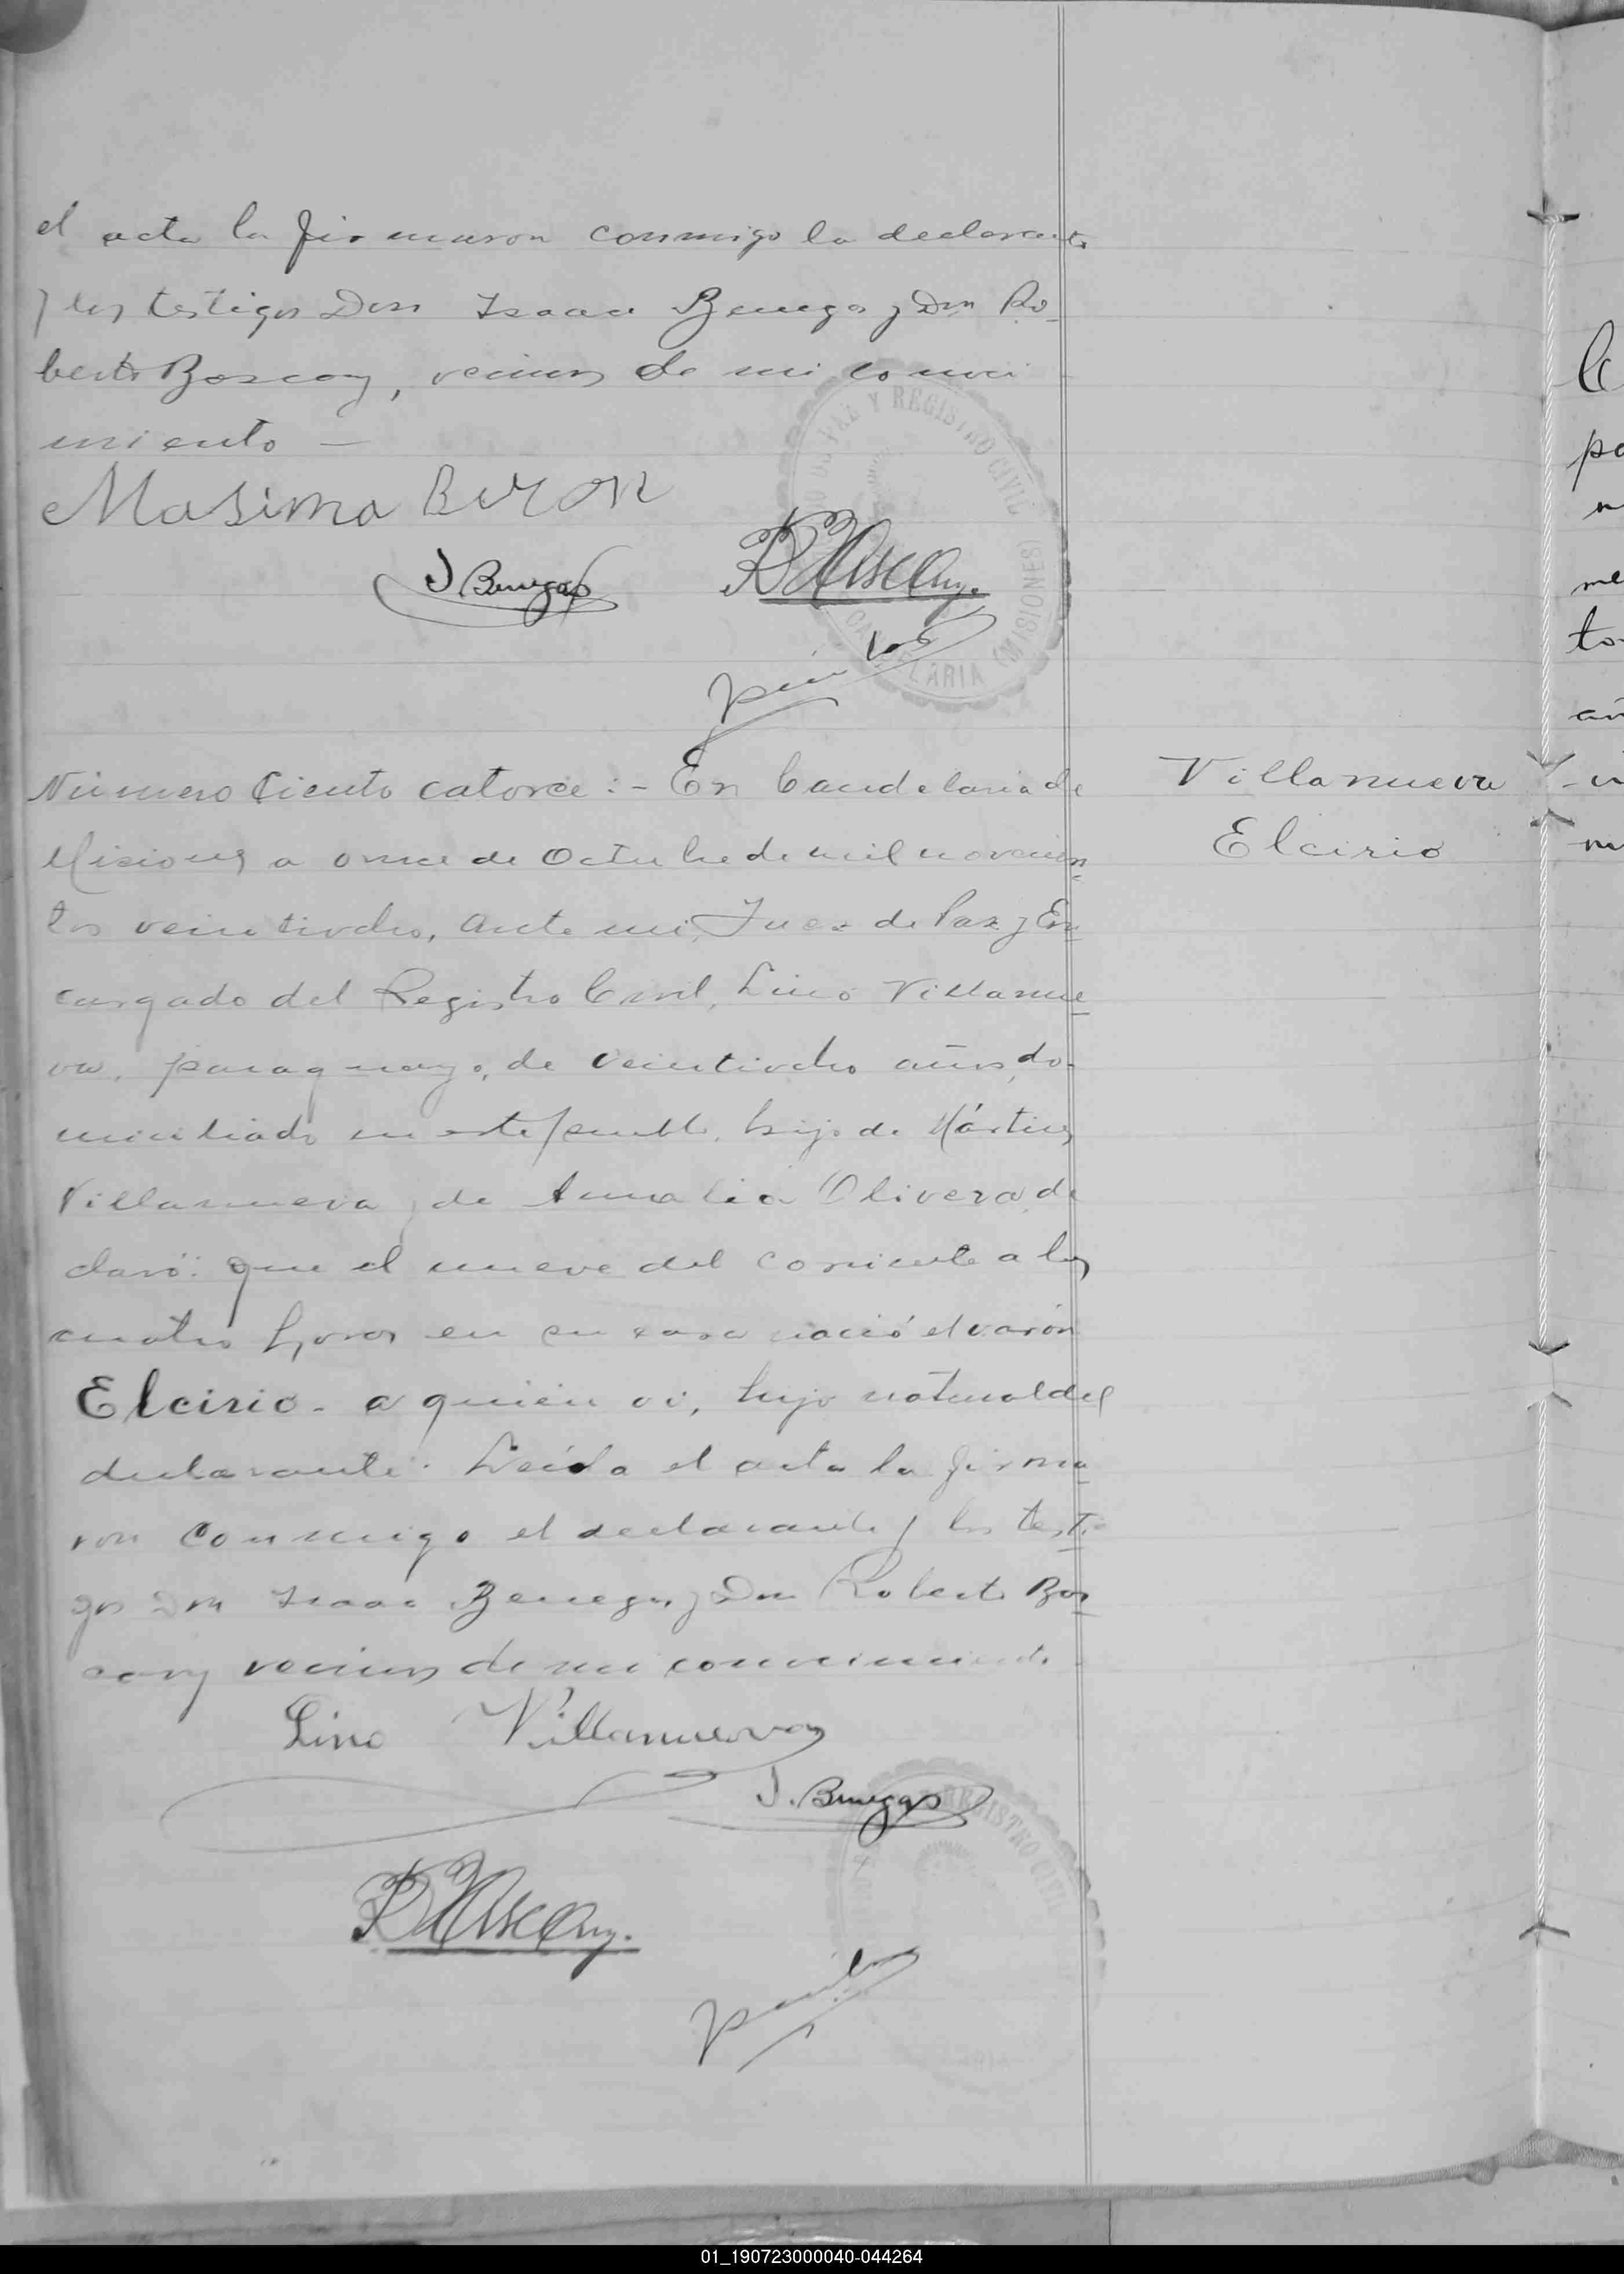 el acta la firmaron conmigo la declarante
y los testigos Don Isaac Benegas y Don Ro-
berto Boscany, vecinos de mi conoci
miento —
Masima Biron
J. Benegas
Número Ciento catorce:- En Candelaria de
Misiones a once de Octubre de mil novecien
tos veintiocho, ante mi, Juez de Paz y En
cargado del Registro Civil, Lino Villanue
va, paraguayo, de veintiocho años, do-
miciliado en este pueblo, hijo de Mártires
Villanueva y de Amalia Olivera, de
claró: que el nueve del corriente a las
cuatro horas en su casa nació el varón
Elcirio - a quien vi, hijo natural del
declarante. Leída el acta la firma
ron conmigo el declarante y los testi-
gos Don Isaac Benegas y Don Roberto Bos
cany vecinos de mi conocimiento
Lino Villanueva
J. Benegas
Villanueva
Elcirio
Y REGISTRO CIVIL
CANDELARIA (MISIONES)
REGISTRO CIVIL
01_190723000040-044264